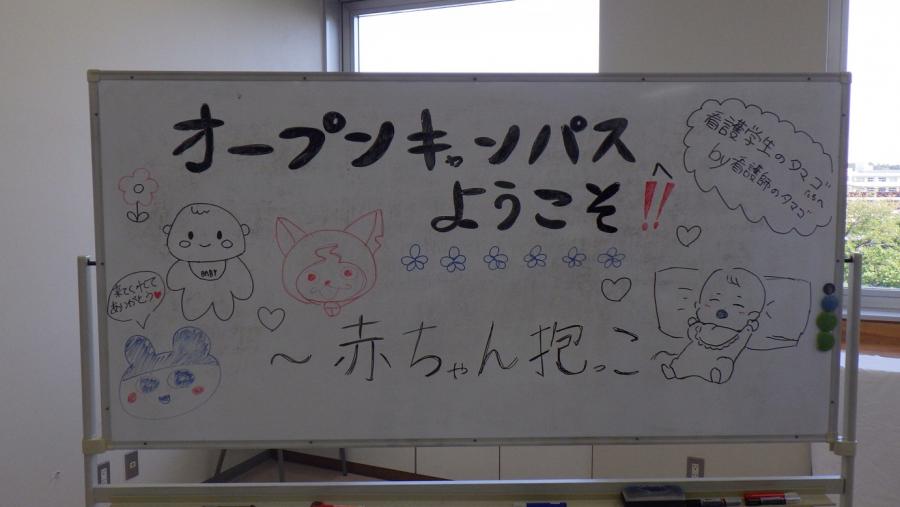 オープンキャンパス
ようこそへ!!
看護学生のタマゴたちへ
by看護師のタマゴ
BABY
来てくれて
ありがとう♥
～赤ちゃん抱っこ